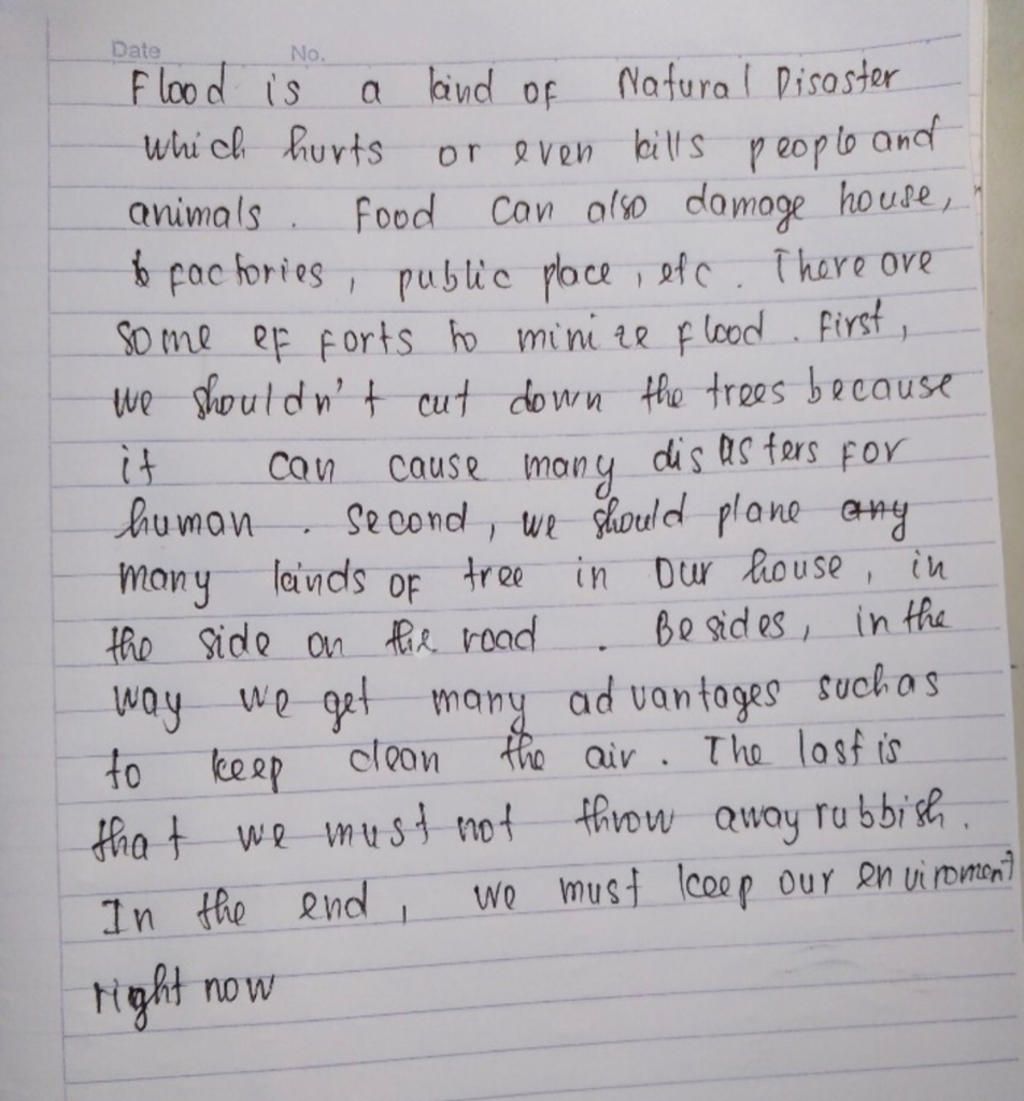 Date No.
Flood is a kind of Natural Disaster
which hurts or even kills people and
animals. Food can also damage house,
factories, public place, etc. There are
some efforts to minize flood. First,
we shouldn't cut down the trees because
it can cause many disasters for
human. Second, we should plane any
many kinds of tree in our house, in
the side on the road. Besides, in the
way we get many advantages such as
to keep clean the air. The last is
that we must not throw away rubbish.
In the end, we must keep our enviroment
right now